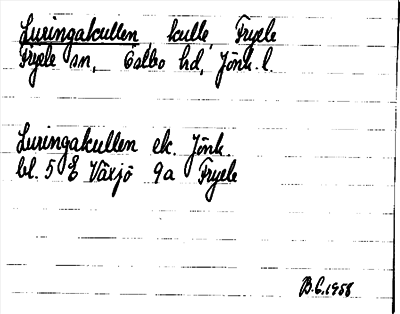 Luringakullen, kulle, Fryele
Fryele sn, Östbo hd, Jönk. l.
Luringakullen ek. Jönk.
bl. 5 E Växjö 9a Fryele
B.C. 1958